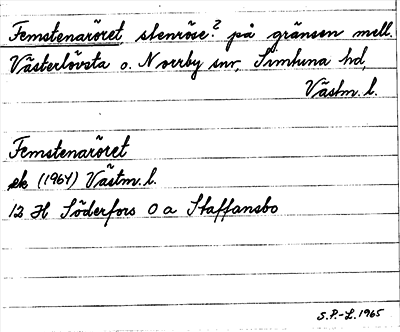 Femstenaröret stenröse? på gränsen mell.
Västerlövsta o. Norrby snr, Simtuna hd,
Västm. l.
Femstenaröret
ek (1964) Västm. l.
12 H Söderfors 0 a Staffansbo
S.P.-L. 1965